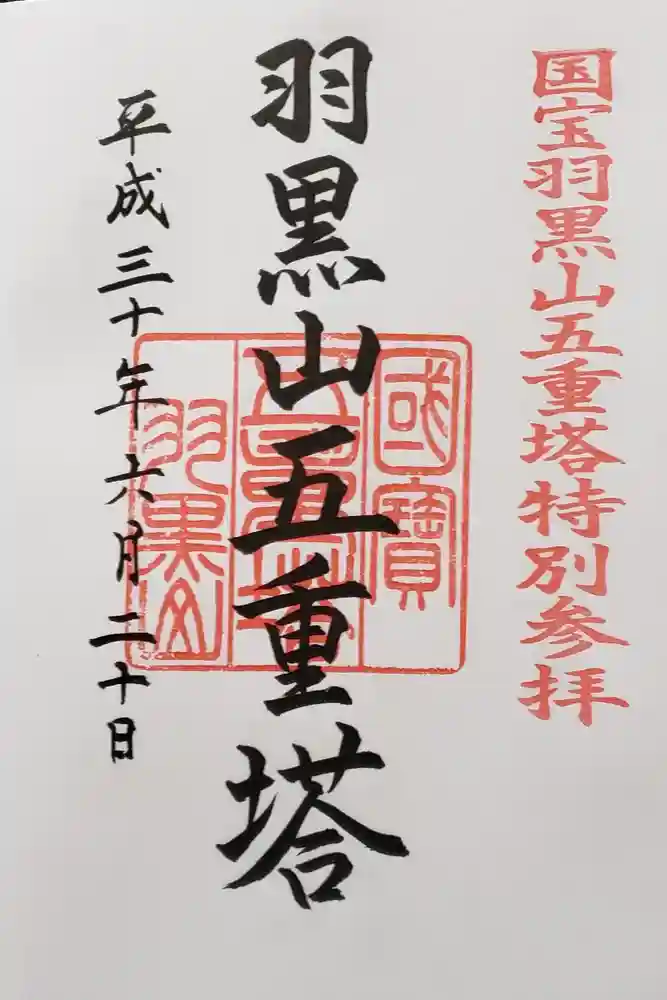 国宝羽黒山五重塔特別参拝
羽黒山五重塔
國寶
羽黒山
平成三十年六月二十日